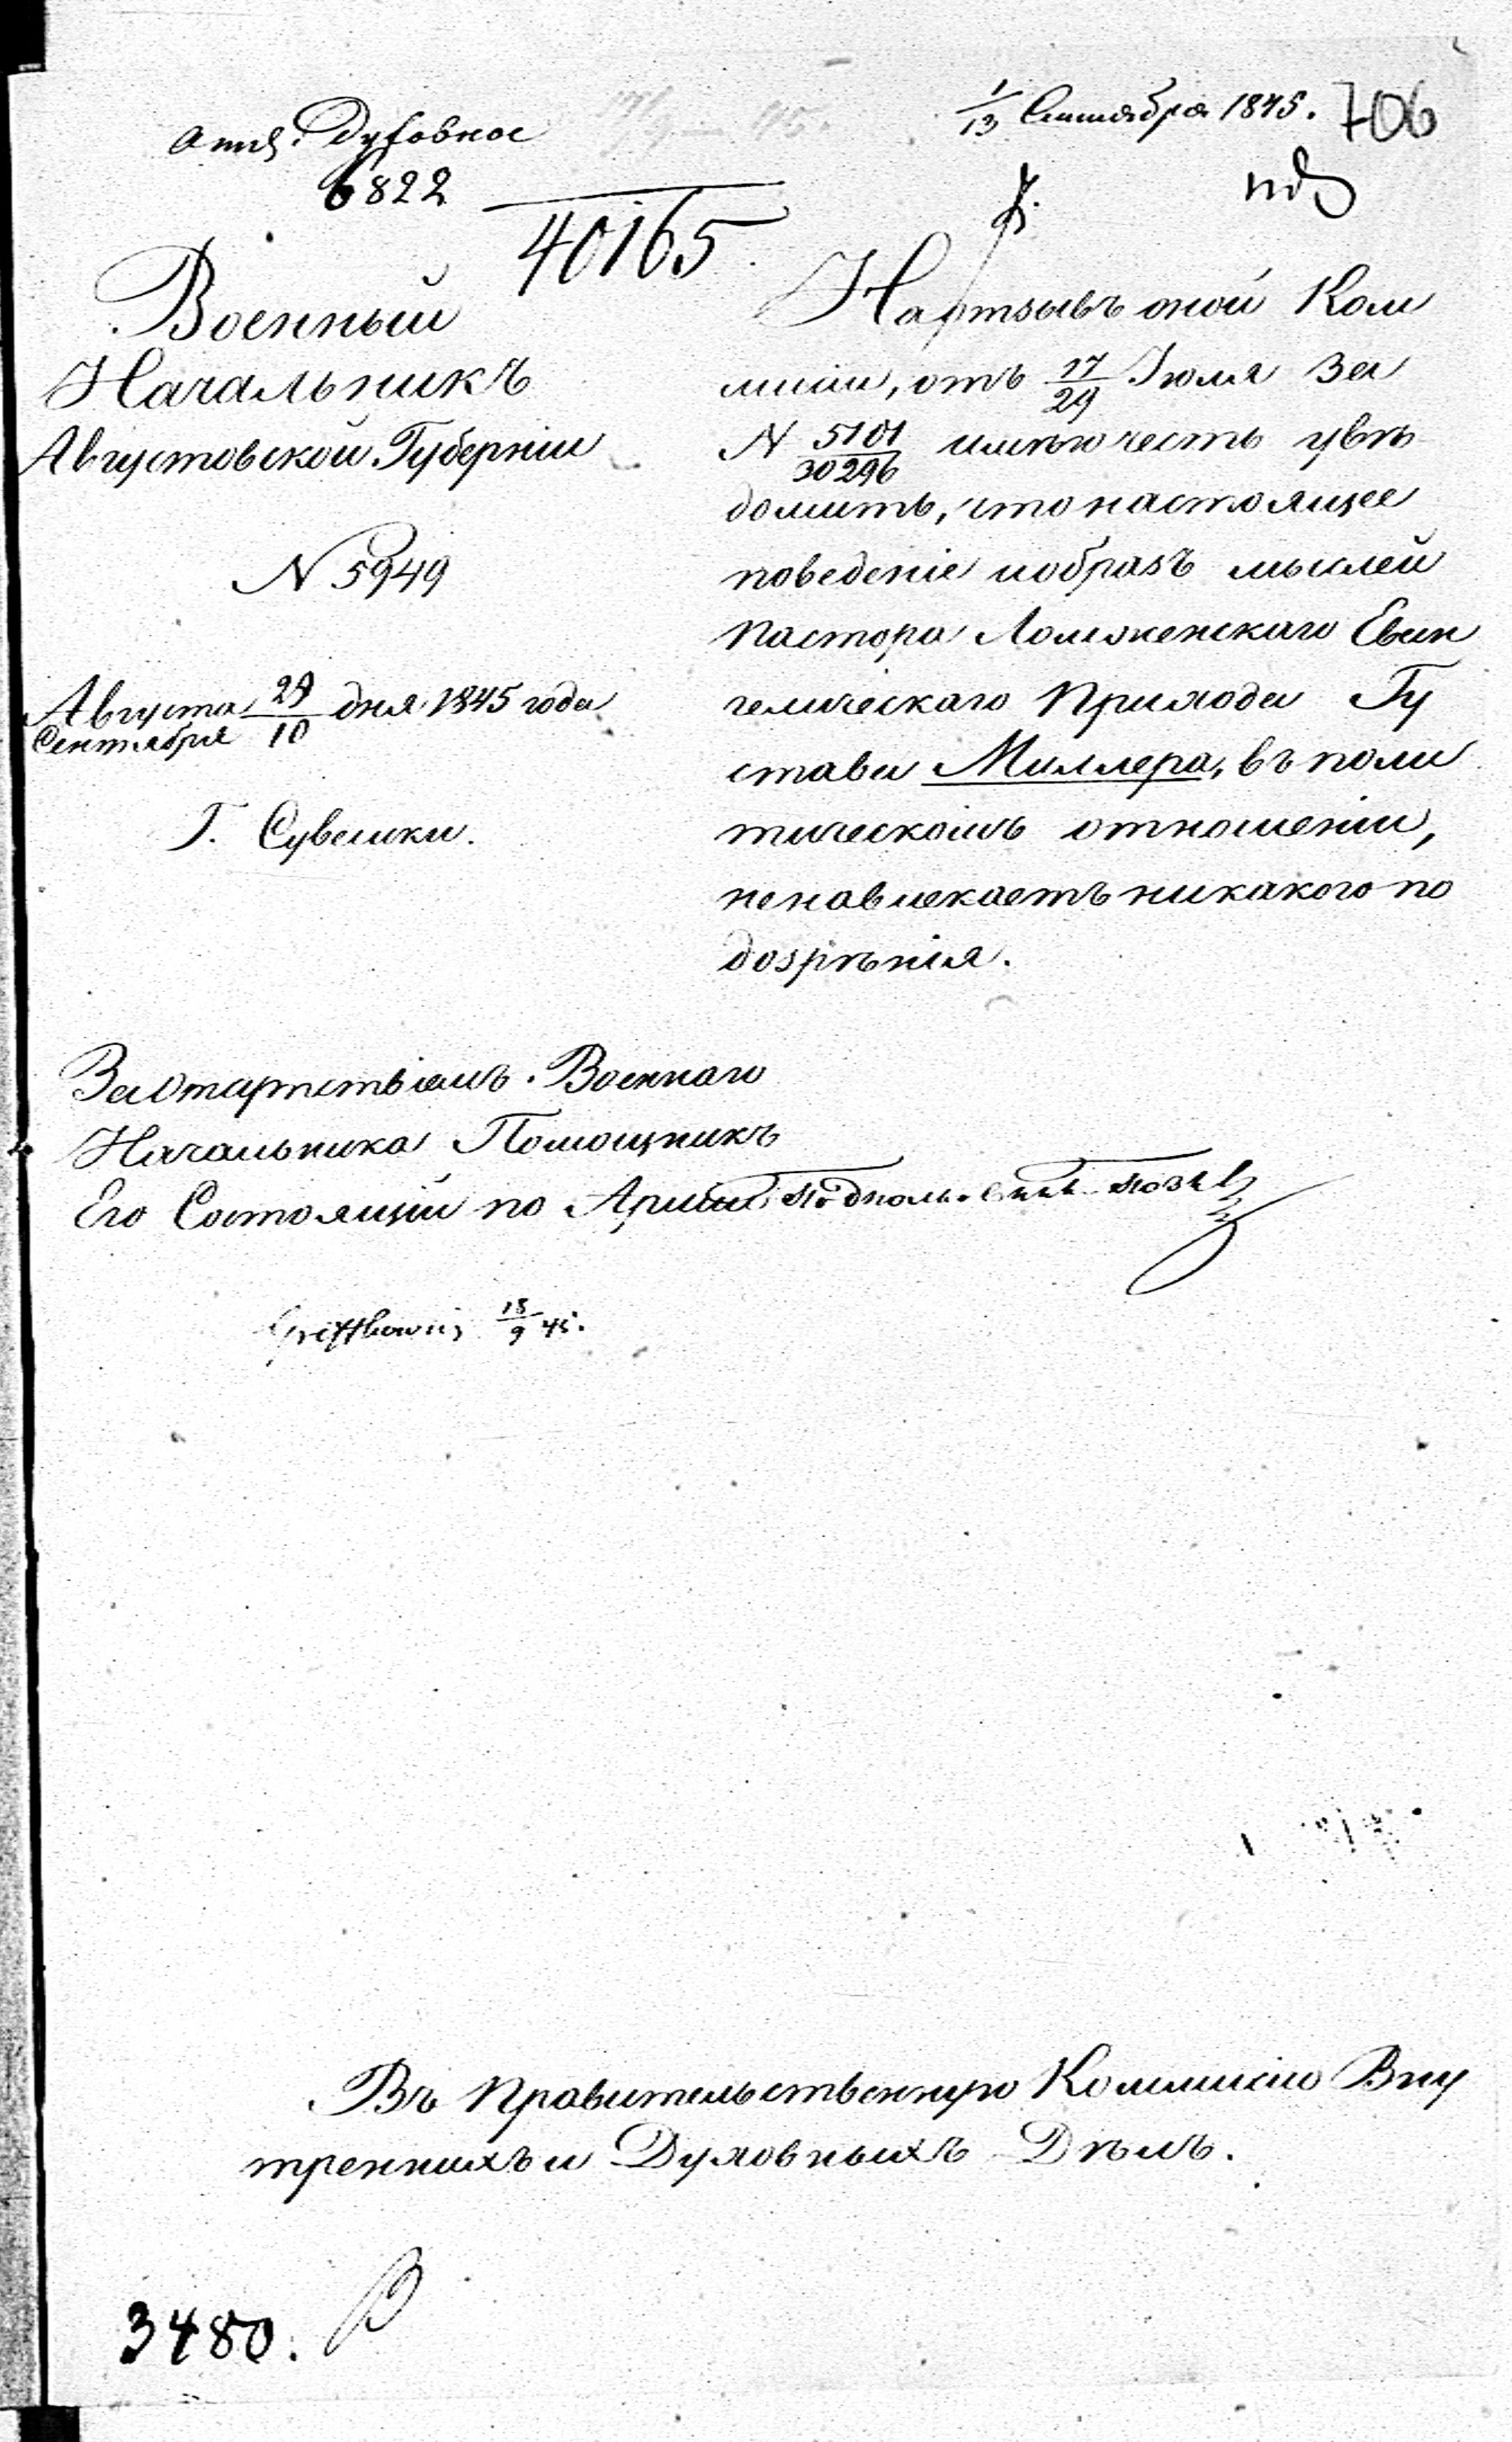 Отд. Духовное
6822
40165
1/13 Сентября 1845. 706
Военный
Начальникъ
Августовской Губерніи
N 5949
Августа 29/10 дня 1845 года
Сентября
Г. Сувалки.
На отзывъ оной Ком
мисіи, отъ 17/29 Іюля за
N 5101/30296 имѣю честь увѣ
домить, что настоящее
поведеніе и образъ мыслей
Пастора Ломженскаго Еван
гелическаго Прихода Гу
става Миллера, въ поли
тическомъ отношеніи,
ненавлекаетъ никакого по
дозрѣнія.
За Отсутствіемъ Военнаго
Начальника Помощникъ
Его Состоящій по Арміи Подполковникъ
15/9 45.
Въ Правительственную Коммисію Вну
треннихъ и Духовныхъ Дѣлъ.
3480.